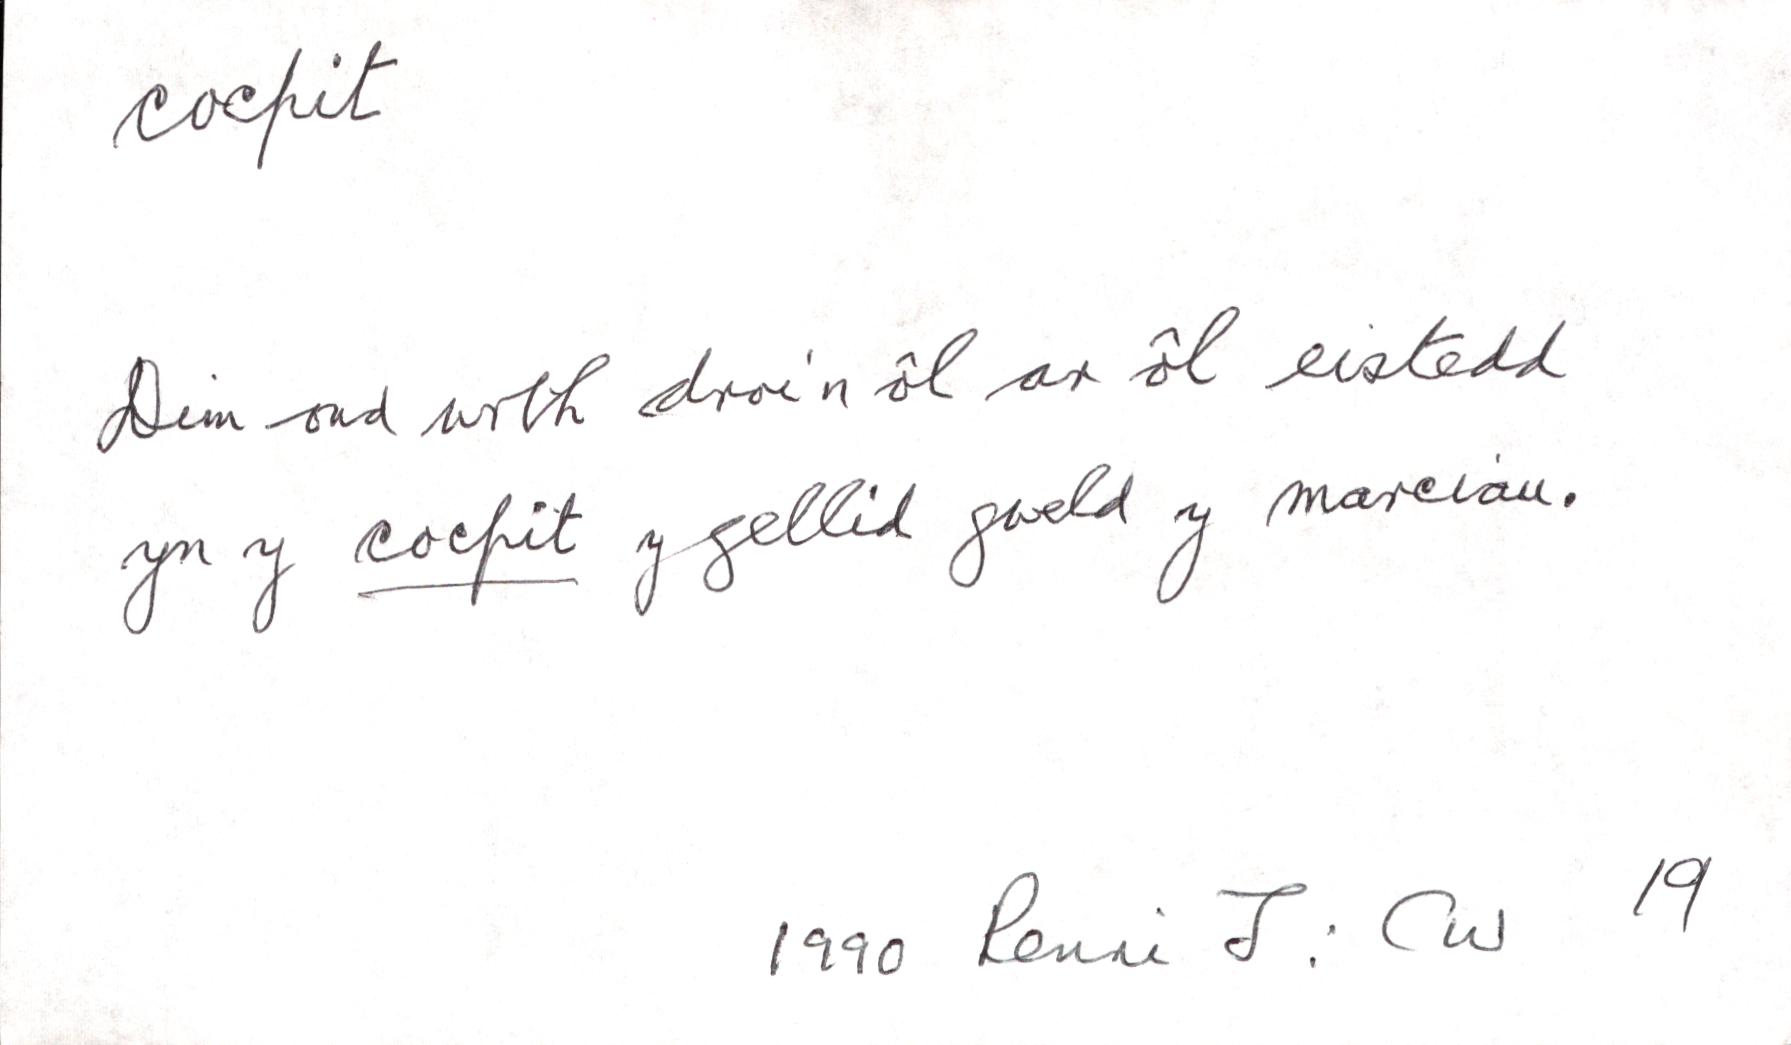 cocpit
Dim ond wrth droi'n ôl ar ôl eistedd
yn y cocpit y gellid gweld y marciau.
1990 Penri J.: CW 19